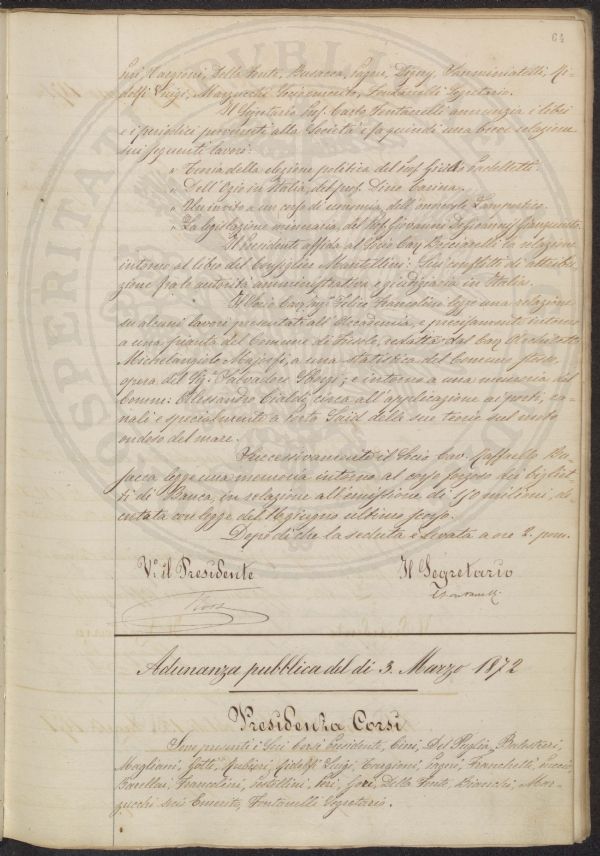 64
Peri, Targioni, Della Fonte, Busacca, Pozzi, Digny, Fanminiatelli, Ri-
dolfi Luigi, Marzucchi Socio emerito, Fontanelli Segretario.
Il Segretario Prof. Carlo Fontanelli annunzia i libri
e i periodici pervenuti alla Società e fa quindi una breve relazione
sui seguenti lavori:
" Teoria della elezione politica del prof. Guido Padelletti.
" Dell'Ozio in Italia, del prof. Dino Carina.
" Un invito a un corso di economia, dell'onorevole Lampertico.
" La legislazione mineraria, del Prof. Giovanni De Gioannis Gianquinto.
Il Presidente affida al Socio Cav. la relazione
intorno al libro del Consigliere Mantellini: Sui conflitti di attribu-
zione fra le autorità amministrativa e giudiziaria in Italia.
Il Socio Cav. Ing.e Felice Francolini legge una relazione
su alcuni lavori presentati all'Accademia, e precisamente intorno
a una pianta del Comune di Fiesole, redatta dal Cav. Architetto
Michelangiolo Majorfi, a una statistica del Comune stesso,
opera del Sig.r Salvadore e intorno a una memoria del
Comm. Alessandro Cialdi, circa all'applicazione ai porti, ca-
nali e specialmente a Porto Said della sua teoria sul moto
ondoso del mare.
Successivamente il Socio Cav. Raffaello Bu-
sacca legge una memoria intorno al corso forzoso dei bigliet-
ti di Banca, in relazione all'emissione di 150 milioni, de-
cretata con legge del giugno ultimo scorso.
Dopo di che la seduta è levata a ore 2. pom.
V.o il Presidente
Il Segretario
Corsi
C Fontanelli
Adunanza pubblica del dì 3. Marzo 1872
Presidenza Corsi
Sono presenti i Soci Corsi Presidente, Cini, Del Puglia, Balestreri,
Magliani, Gotti, Rubieri, Ridolfi Luigi, Targioni, Pozzi, Franchetti, Puccioni,
Barellai, Francolini, Pestellini, Peri, Gori, Della Fonte, Bianchi, Mar-
zucchi socio Emerito, Fontanelli Segretario.